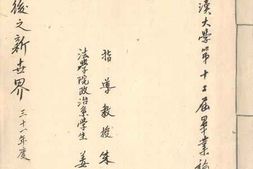 漢大學第十一屆畢業論
指導教授朱
法學院政治系學生姜
後之新世界 三十一年度